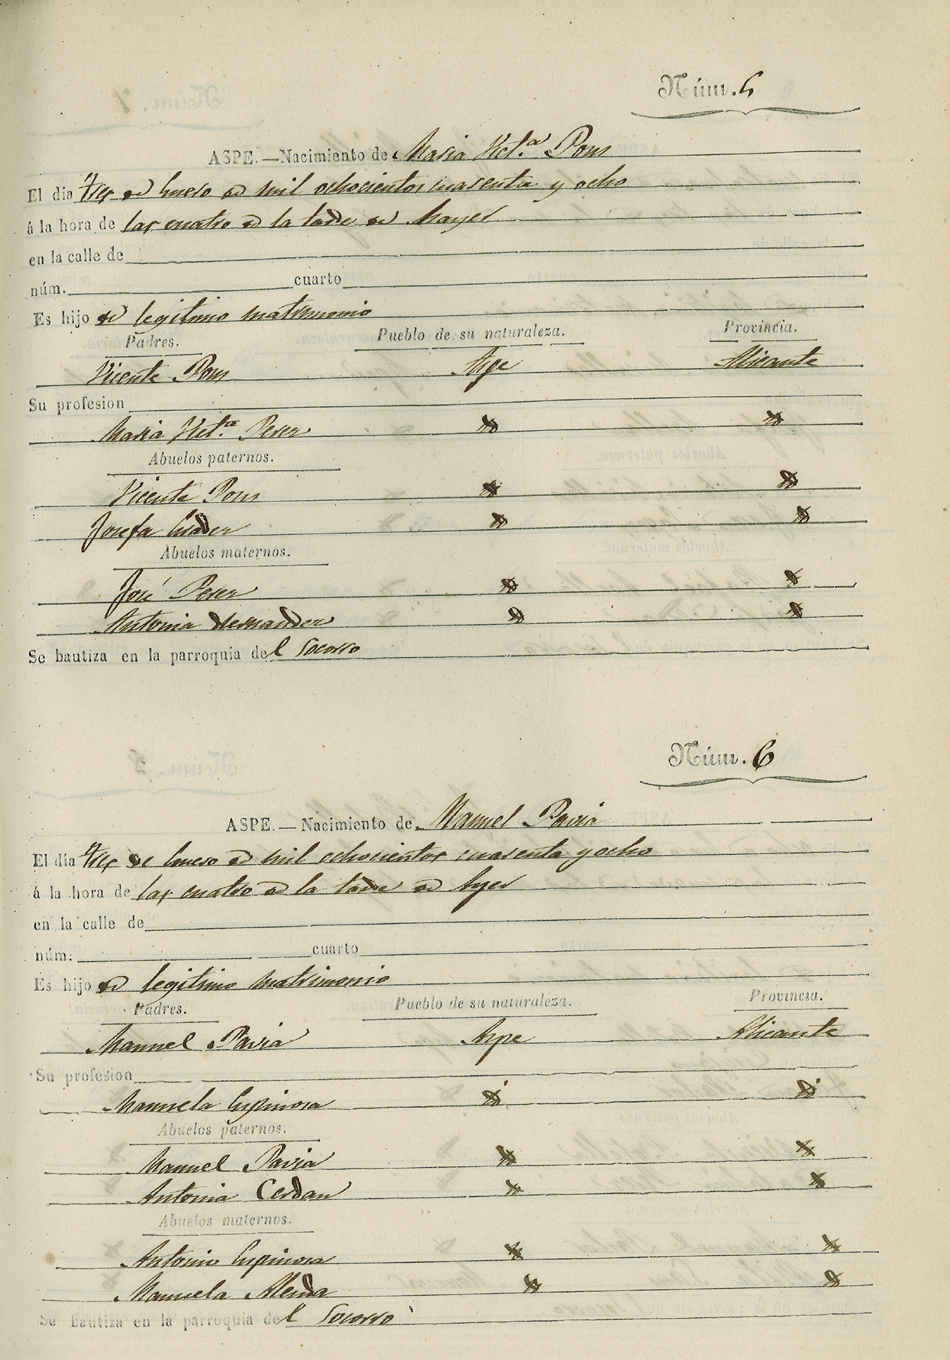 Núm. 5
ASPE.—Nacimiento de Maria Vict.ª Pons
El dia tres de Enero de mil ochocientos cuarenta y ocho
á la hora de las cuatro de la tarde de
en la calle de
núm. cuarto
Es hijo de legitimo matrimonio
Padres. Pueblo de su naturaleza. Provincia.
Vicente Pons Aspe Alicante
Su profesion
Maria Vict.ª Perez
Abuelos paternos.
Vicente Pons
Josefa
Abuelos maternos.
José Perez
Antonia
Se bautiza en la parroquia del Socorro
Núm. 6
ASPE.—Nacimiento de Manuel Pavia
El día tres de Enero de mil ochocientos cuarenta y ocho
á la hora de las cuatro de la tarde de Ayer
en la calle de
núm. cuarto
Es hijo de legitimo matrimonio
Padres. Pueblo de su naturaleza. Provincia.
Manuel Pavia Aspe Alicante
Su profesion
Manuela Espinosa
Abuelos paternos.
Manuel Pavia
Antonia Cerdan
Abuelos maternos.
Antonio Espinosa
Manuela
Se bautiza en la parroquia del Socorro